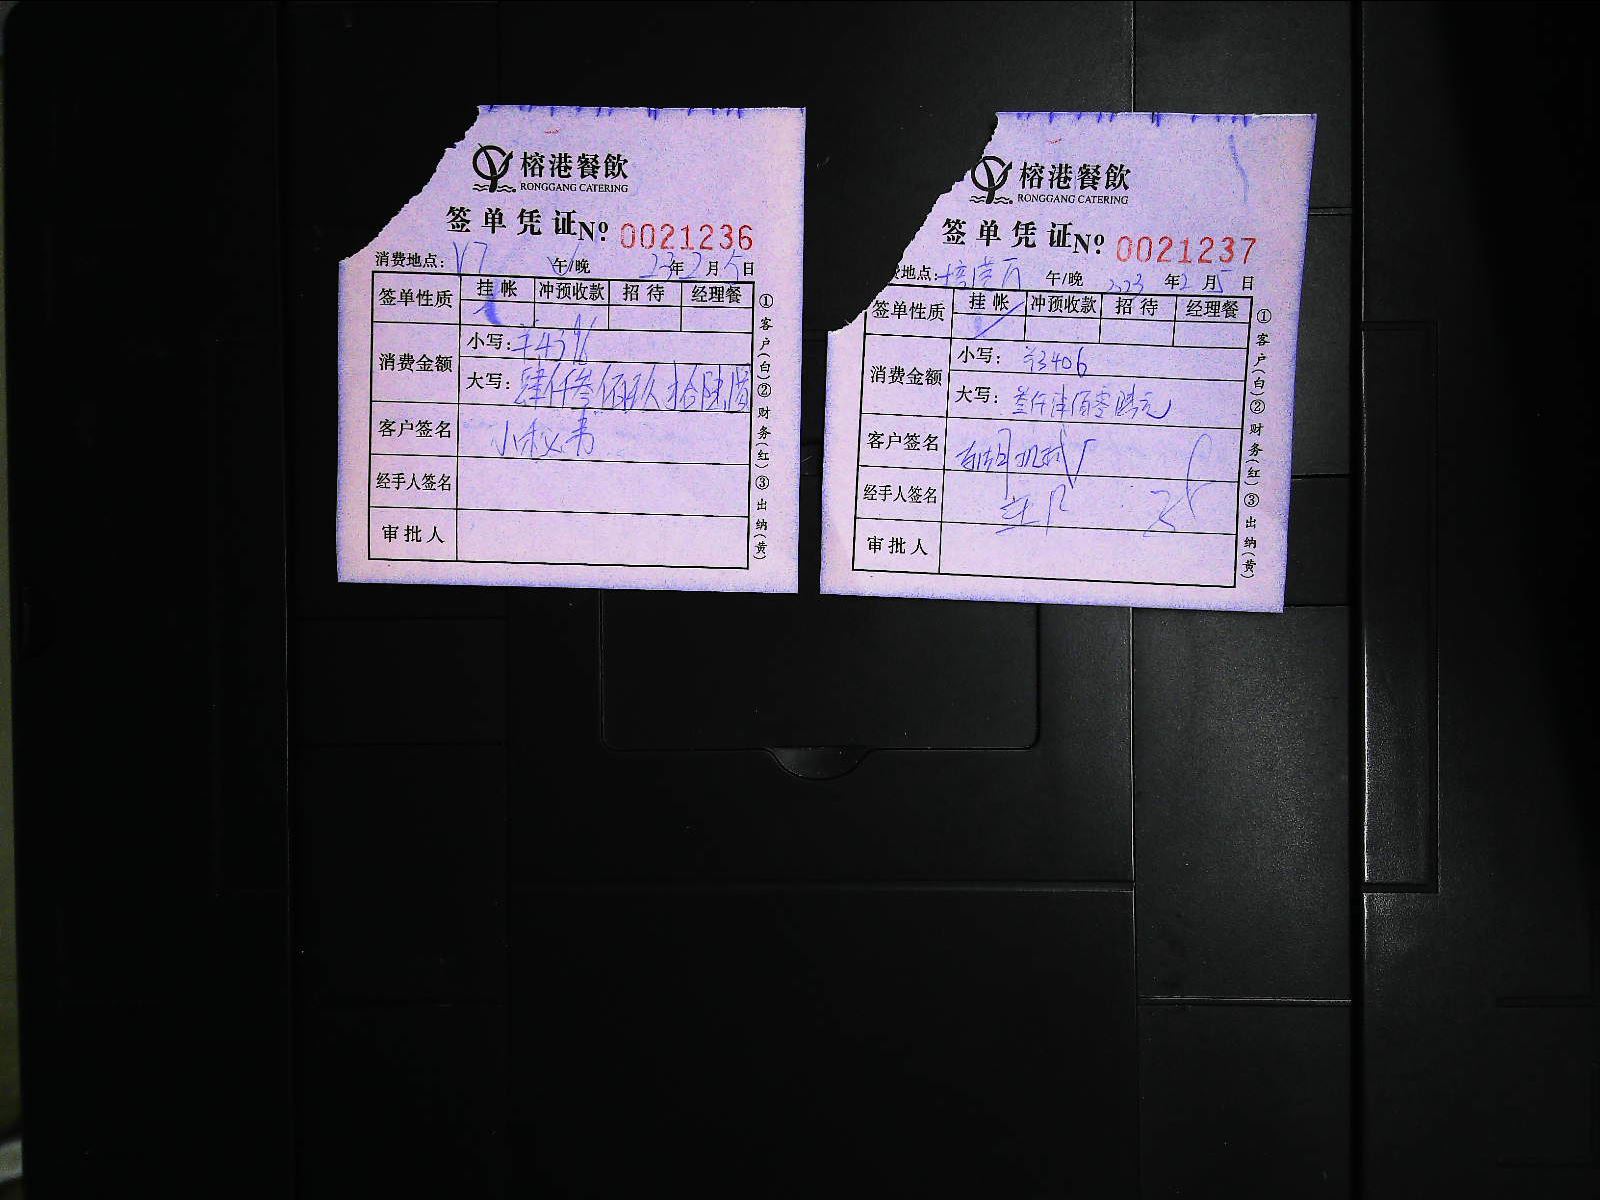 榕港餐飲
RONGGANG CATERING
签单凭证 Nº 0021236
消费地点: V7 午/晚 23年2月5日
签单性质 挂帐 冲预收款 招待 经理餐
消费金额
小写: ¥4396
大写: 肆仟叁佰玖拾陆
客户签名 小秘书
经手人签名
审批人
①客户(白)②财务(红)③出纳(黄)
榕港餐飲
RONGGANG CATERING
签单凭证 Nº 0021237
费地点: 午/晚 2023年2月5日
签单性质 挂帐 冲预收款 招待 经理餐
消费金额
小写: ¥3406
大写: 叁仟肆佰零陆元
客户签名 机械厂
经手人签名
审批人
①客户(白)②财务(红)③出纳(黄)